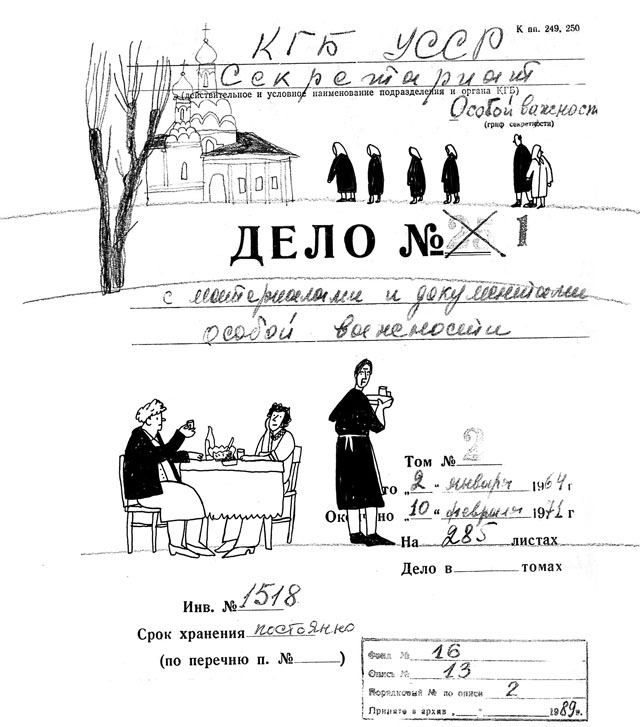 К пп. 249, 250
КГБ УССР
Секретариат
(действительное и условное наименование подразделения и органа КГБ)
Особой важност
(гриф секретности)
ДЕЛО № 1
с материалами и документами
особой важности
Том № 2
то „2“ января 1964 г
Ок но „10“ февраля 1972 г
На 285 листах
Дело в томах
Инв. № 1518
Срок хранения постоянно
(по перечню п. № )
Фонд № 16
Опись № 13
Порядковый № по описи 2
Принято в архив „ “ 1989 г.